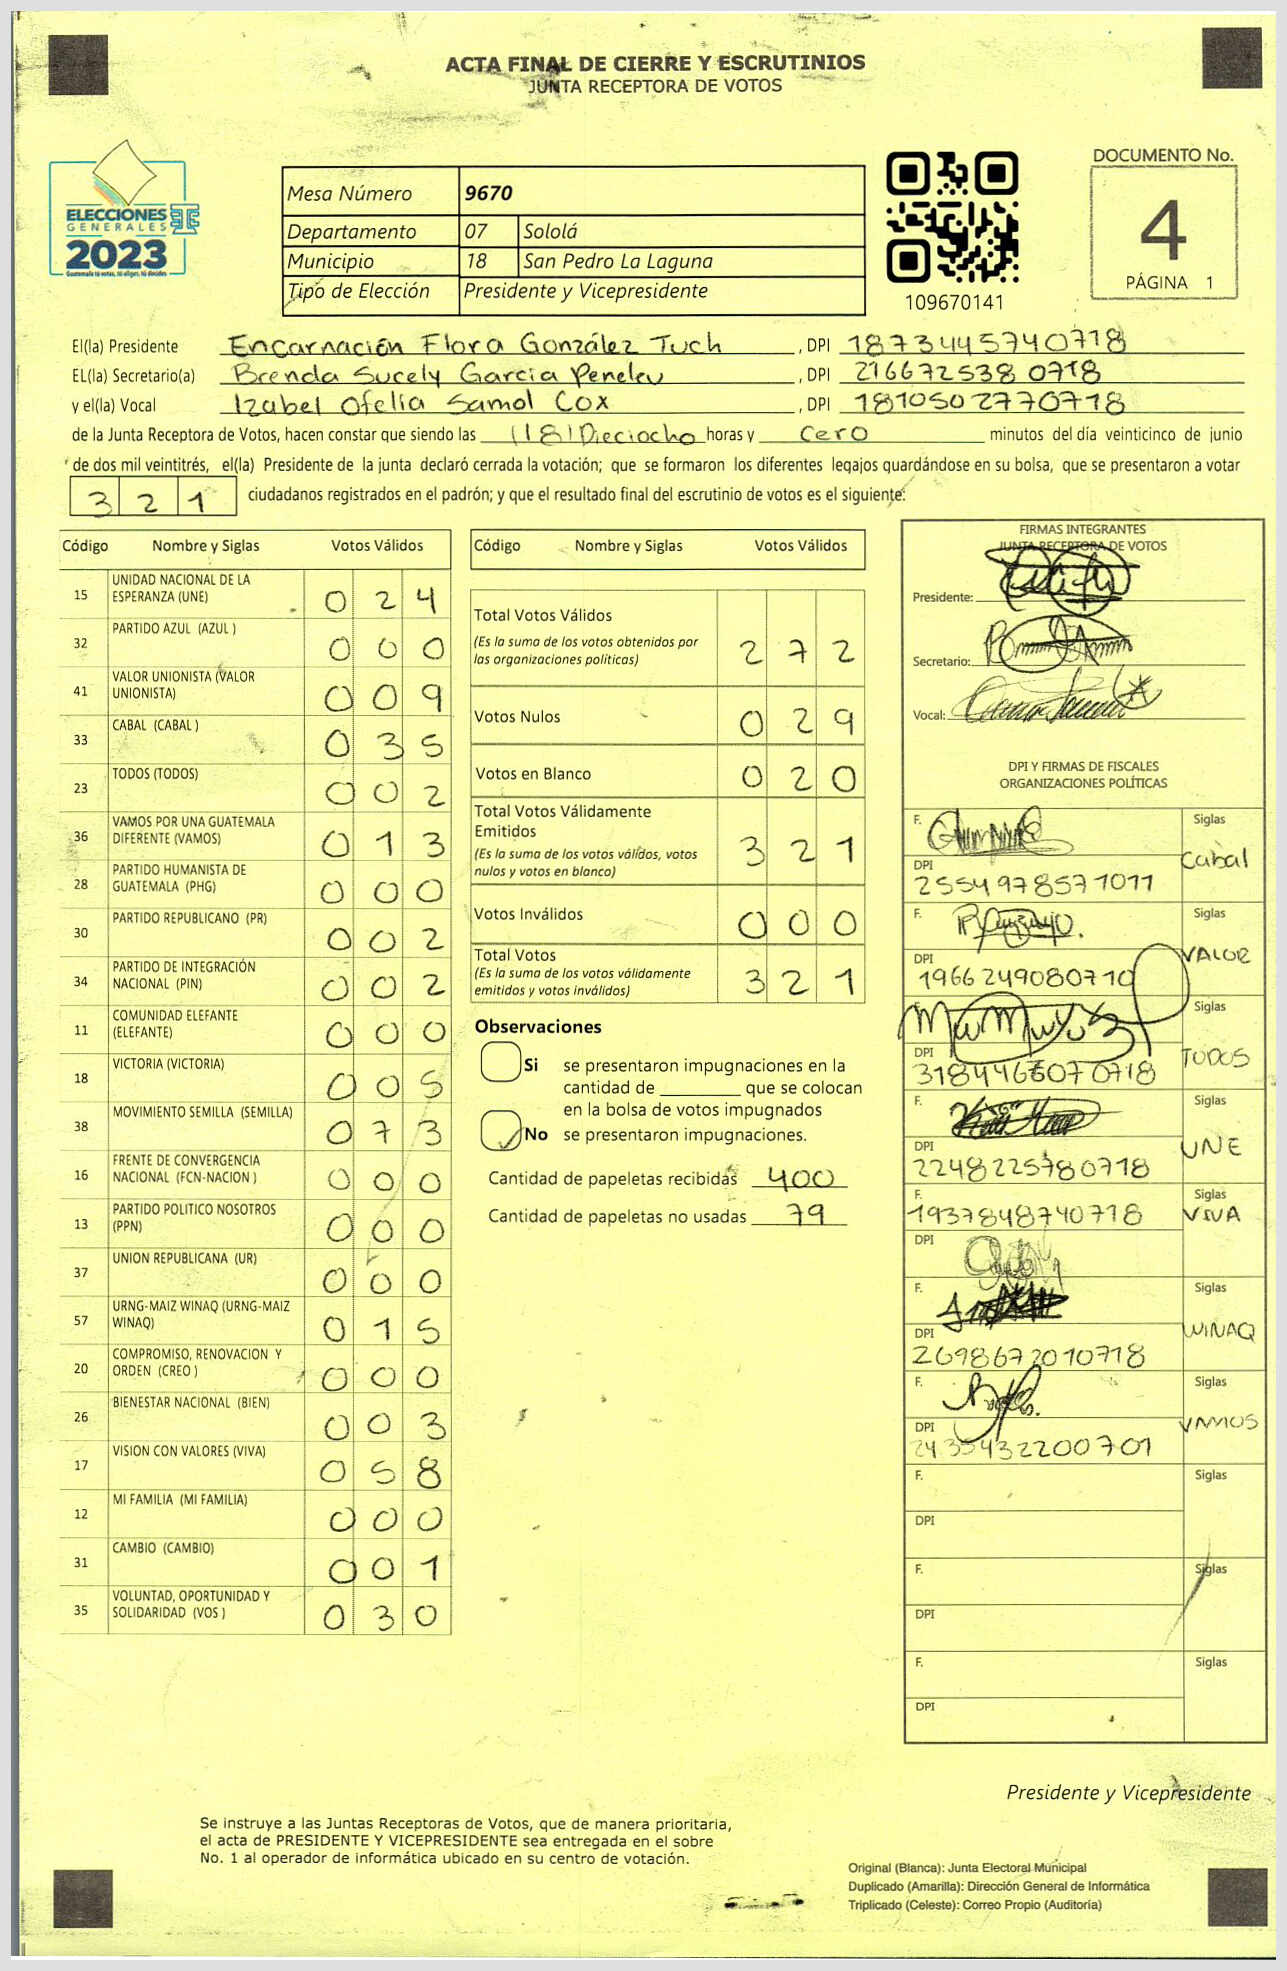 ACTA FINAL DE CIERRE Y ESCRUTINIOS
JUNTA RECEPTORA DE VOTOS
ELECCIONES
GENERALES
2023
Guatemala tú votas, tú eliges, tú decides
Mesa Número 9670
Departamento 07 Sololá
Municipio 18 San Pedro La Laguna
Tipo de Elección Presidente y Vicepresidente
109670141
DOCUMENTO No.
4
PÁGINA 1
El(la) Presidente Encarnación Flora González Tuch , DPI 1873445740718
EL(la) Secretario(a) Brenda Sucely Garcia Peneleu , DPI 2166725380718
y el(la) Vocal Izabel Ofelia Samol Cox , DPI 1810502770718
de la Junta Receptora de Votos, hacen constar que siendo las (18) Dieciocho horas y cero minutos del día veinticinco de junio
de dos mil veintitrés, el(la) Presidente de la junta declaró cerrada la votación; que se formaron los diferentes legajos guardándose en su bolsa, que se presentaron a votar
321 ciudadanos registrados en el padrón; y que el resultado final del escrutinio de votos es el siguiente:
Código Nombre y Siglas Votos Válidos
15 UNIDAD NACIONAL DE LA ESPERANZA (UNE) 024
32 PARTIDO AZUL (AZUL ) 000
41 VALOR UNIONISTA (VALOR UNIONISTA) 009
33 CABAL (CABAL ) 035
23 TODOS (TODOS) 002
36 VAMOS POR UNA GUATEMALA DIFERENTE (VAMOS) 013
28 PARTIDO HUMANISTA DE GUATEMALA (PHG) 000
30 PARTIDO REPUBLICANO (PR) 002
34 PARTIDO DE INTEGRACIÓN NACIONAL (PIN) 002
11 COMUNIDAD ELEFANTE (ELEFANTE) 000
18 VICTORIA (VICTORIA) 005
38 MOVIMIENTO SEMILLA (SEMILLA) 073
16 FRENTE DE CONVERGENCIA NACIONAL (FCN-NACION ) 000
13 PARTIDO POLITICO NOSOTROS (PPN) 000
37 UNION REPUBLICANA (UR) 000
57 URNG-MAIZ WINAQ (URNG-MAIZ WINAQ) 015
20 COMPROMISO, RENOVACION Y ORDEN (CREO ) 000
26 BIENESTAR NACIONAL (BIEN) 003
17 VISION CON VALORES (VIVA) 058
12 MI FAMILIA (MI FAMILIA) 000
31 CAMBIO (CAMBIO) 001
35 VOLUNTAD, OPORTUNIDAD Y SOLIDARIDAD (VOS ) 030
Código Nombre y Siglas Votos Válidos
Total Votos Válidos 272
(Es la suma de los votos obtenidos por
las organizaciones políticas)
Votos Nulos 029
Votos en Blanco 020
Total Votos Válidamente
Emitidos 321
(Es la suma de los votos válidos, votos
nulos y votos en blanco)
Votos Inválidos 000
Total Votos 321
(Es la suma de los votos válidamente
emitidos y votos inválidos)
Observaciones
Si se presentaron impugnaciones en la
cantidad de ________ que se colocan
en la bolsa de votos impugnados
No se presentaron impugnaciones.
Cantidad de papeletas recibidas 400
Cantidad de papeletas no usadas 79
FIRMAS INTEGRANTES
JUNTA RECEPTORA DE VOTOS
Presidente:
Secretario:
Vocal:
DPI Y FIRMAS DE FISCALES
ORGANIZACIONES POLÍTICAS
F. Siglas
Cabal
DPI
2554978571011
F. Siglas
VALOR
DPI
1966249080710
Siglas
TODOS
DPI
3184466070718
F. Siglas
UNE
DPI
2248225780718
F. Siglas
1937848740718 VIVA
DPI
F. Siglas
WINAQ
DPI
2698672010718
F. Siglas
VAMOS
DPI
2435432200701
F. Siglas
DPI
F. Siglas
DPI
F. Siglas
DPI
Presidente y Vicepresidente
Se instruye a las Juntas Receptoras de Votos, que de manera prioritaria,
el acta de PRESIDENTE Y VICEPRESIDENTE sea entregada en el sobre
No. 1 al operador de informática ubicado en su centro de votación.
Original (Blanca): Junta Electoral Municipal
Duplicado (Amarilla): Dirección General de Informática
Triplicado (Celeste): Correo Propio (Auditoría)